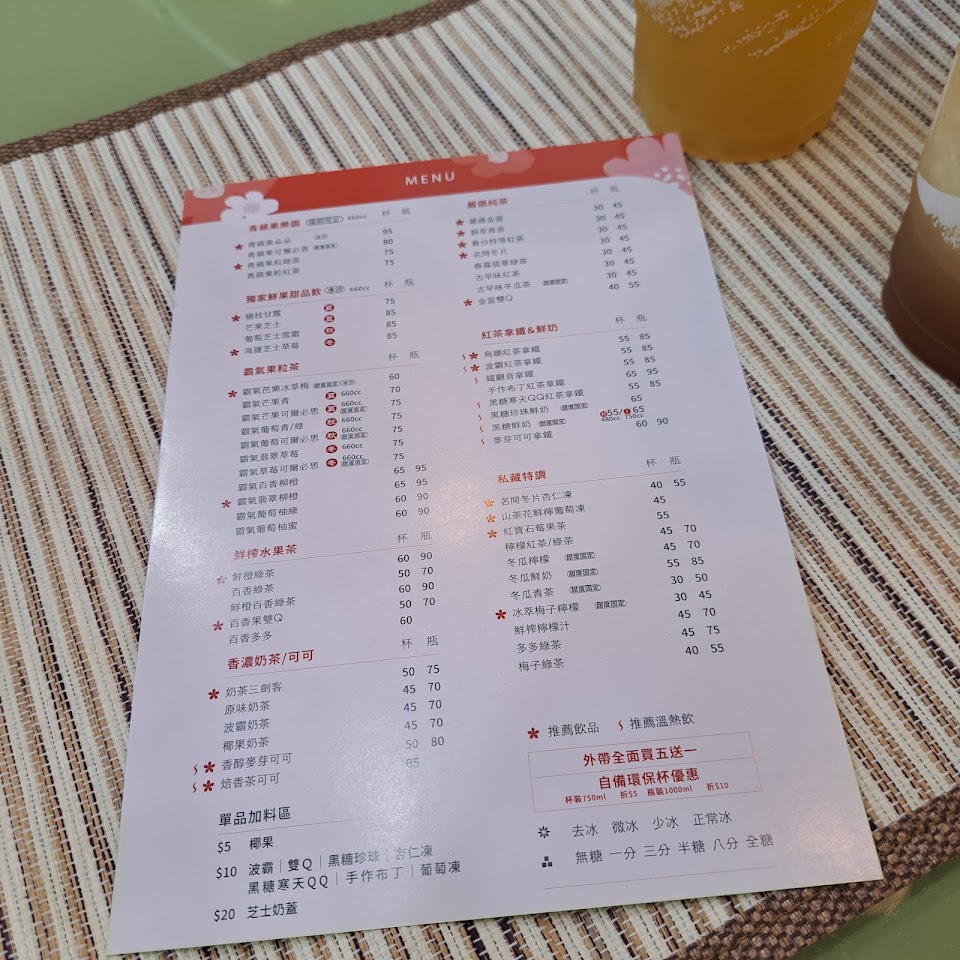 MENU
青蘋果樂園 期間限定 660cc 杯 瓶
青蘋果朵朵 冰沙 95
青蘋果可爾必思 甜度固定 80
青蘋果粒綠茶 75
青蘋果粒紅茶 75
獨家鮮果甜品飲 冰沙 660cc 杯 瓶
楊枝甘露 夏 75
芒果芝士 夏 85
葡萄芝士雪霜 秋 85
海鹽芝士草莓 冬 85
霸氣果粒茶 杯 瓶
霸氣芭樂冰萃梅 甜度固定 冰沙 60
霸氣芒果青 夏 660cc 70
霸氣芒果可爾必思 夏 660cc 甜度固定 75
霸氣葡萄青/綠 秋 660cc 75
霸氣葡萄可爾必思 秋 660cc 甜度固定 75
霸氣翡翠草莓 冬 660cc 75
霸氣草莓可爾必思 冬 660cc 甜度固定 75
霸氣百香柳橙 65 95
霸氣翡翠柳橙 65 95
霸氣葡萄柚綠 60 90
霸氣葡萄柚蜜 60 90
鮮榨水果茶 杯 瓶
鮮橙綠茶 60 90
百香綠茶 50 70
鮮橙百香綠茶 60 90
百香果雙Q 50 70
百香多多 60
香濃奶茶/可可 杯 瓶
奶茶三劍客 50 75
原味奶茶 45 70
波霸奶茶 45 70
椰果奶茶 45 70
香醇麥芽可可 50 80
焙香茶可可
單品加料區
$5 椰果
$10 波霸｜雙Q｜黑糖珍珠｜杏仁凍
黑糖寒天QQ｜手作布丁｜葡萄凍
$20 芝士奶蓋
嚴選純茶 杯 瓶
嚴選金萱 30 45
碧翠青茶 30 45
春分特等紅茶 30 45
名間冬片 30 45
春露翡翠綠茶 30 45
古早味紅茶 30 45
古早味冬瓜茶 甜度固定 30 45
金萱雙Q 40 55
紅茶拿鐵&鮮奶 杯 瓶
烏娜紅茶拿鐵 55 85
波霸紅茶拿鐵 55 85
鐵觀音拿鐵 55 85
手作布丁紅茶拿鐵 65 95
黑糖寒天QQ紅茶拿鐵 55 85
黑糖珍珠鮮奶 甜度固定 65
黑糖鮮奶 甜度固定 中55/大65
480cc 750cc
麥芽可可拿鐵 60 90
私藏特調 杯 瓶
名間冬片杏仁凍 40 55
山茶花鮮檸葡萄凍 45
紅寶石莓果茶 55
檸檬紅茶/綠茶 45 70
冬瓜檸檬 甜度固定 45 70
冬瓜鮮奶 甜度固定 55 85
冬瓜青茶 甜度固定 30 50
冰萃梅子檸檬 甜度固定 30 45
鮮榨檸檬汁 45 70
多多綠茶 45 75
梅子綠茶 40 55
推薦飲品 推薦溫熱飲
外帶全面買五送一
自備環保杯優惠
杯裝750ml 折$5 瓶裝1000ml 折$10
去冰 微冰 少冰 正常冰
無糖 一分 三分 半糖 八分 全糖